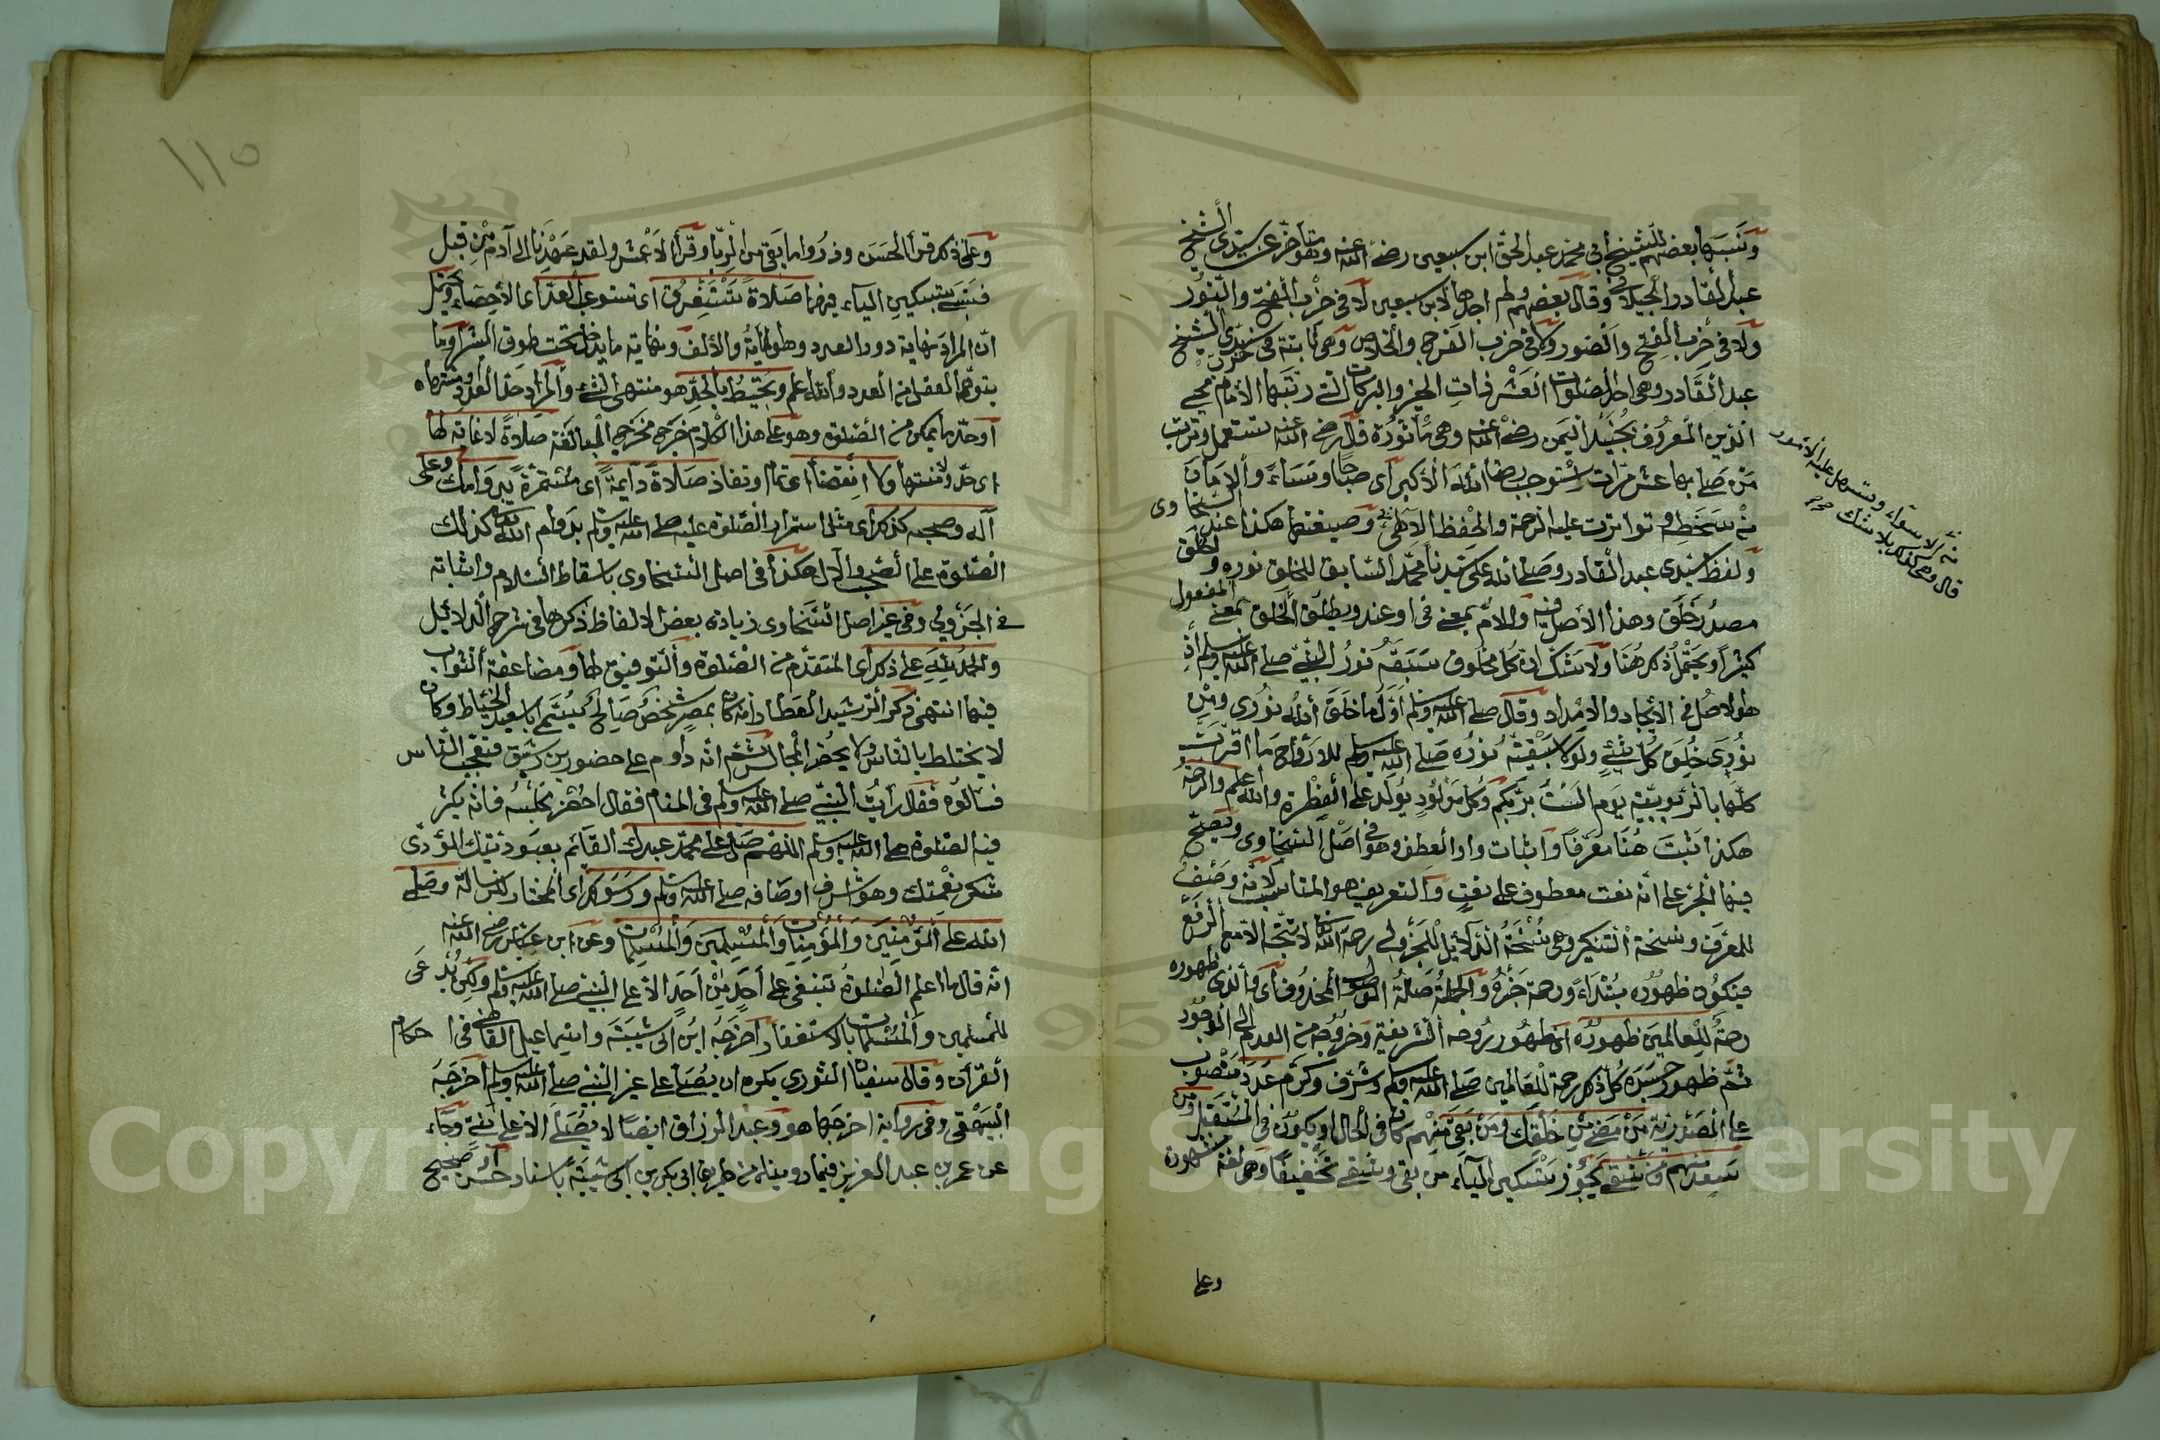 ونسبها بعضهم للشيخ ابي محمد عبد الحق ابن سبعين رضي الله عنه وهو متأخر عن سيدي الشيخ
عبد القادر الجيلاني وقال بعضهم ولم اجدها لابن سبعين لا في حزب الفتح والنور
ولا في حزب الفتح والنور ولا في حزب الفرج والخلاص وهي ثابتة في حزب سيدي الشيخ
عبد القادر وهي احد الصلوات العشر ذات الخير والبركات التي رتبها الامام محيي
الدين المعروف بجنيد اليمن رضي الله عنه وهي مأثورة قال رضي الله عنه تستعمل وترتب
من صلى بها عشر مرات استوجب رضا الله الأكبر اي صباحا ومساء والامان
من سخطه وتواترت عليه الرحمة والحفظ الالهي وصيغتها هكذا عند السخاوي
ولفظ سيدي عبد القادر وصلى الله على سيدنا محمد السابق للخلق نوره والخلق
مصدر خلق وهذا الأصل فيه واللام بمعنى في او عند ويطلق الخلق بمعنى المفعول
كثيرا ويحتمل ذكر هنا ولا شك ان كل مخلوق سبقه نور النبي صلى الله عليه وسلم اذ
هو الاصل في الأيجاد والامداد وقال صلى الله عليه وسلم أول ما خلق الله نوري ومن
نوري خلق كل شئ ولولا سبقية نوره صلى الله عليه وسلم للارواح ما اقرت
كلها بالربوبية يوم الست بربكم وكل مولود يولد على الفطرة والله اعلم والرحمة
هكذا ثبت هنا معرفا واثبات واو العطف وهو في اصل السخاوي ويصح
فيها الجر على أنه نعت معطوف على نعت والتعريف هو المناسب لانه وصف
للمعرف ونسخة التنكير وهي نسخة الدلائل للجزولي رحمه الله لا يتجه الا مع الرفع
فيكون ظهوره مبتداء ورحمة خبره والجملة صلة الموصول المحذوف أي والذي ظهوره
رحمة للعالمين ظهوره اي ظهور روحه الشريفة وخروجه من العدم الى الوجود
ثم ظهور جسده كل ذلك رحمة للعالمين صلى الله عليه وسلم وشرف وكرم عدد منصوب
على المصدرية من مضى من خلقك ومن بقي منهم كان في الحال او يكون في المستقبل ومن
سعد منهم ومن شقي يجوز تسكين الياء من بقي وشقي تخفيفا وهي لغة مشهورة
وعلى
من الاسواء وتسهل عليه الامور
قال وهي كذلك بلا شك
١١٥
وعلى ذلك قرأ الحسن وذروا ما بقي من الربا وقرأ الاعمش ولقد عهدنا الى آدم من قبل
فنسي بتسكين الياء فيهما صلاة تستغرق اي تستوعب العد اي الأحصاء ويحتمل
ان المراد نهاية دور العدد وهو المأية والألف ونهاية ما يدخل تحت طوق البشر او ما
يتوهم العقل من العدد والله اعلم وتحيط بالحد هو منتهى الشئ والمراد حد العدد ومنتهاه
او حد ما يمكن من الصلوة وهو على هذا الكلام خرجه مخرج المبالغة صلاة لا غاية لها
اي حد ولا منتهى ولا انقضاء اي تمام ونفاذ صلاة دائمة اي مستمرة بدوامك وعلى
آله وصحبه كذلك أي مثل استمرار الصلوة عليه صلى الله عليه وسلم بدوام الله كذلك
الصلوة على الصحب والآل هكذا في اصل السخاوي باسقاط السلام واثباته
في الجزولي وفي غير اصل السخاوي زيادة بعض الالفاظ ذكرها في شرح الدلائل
والحمد لله على ذلك أي المتقدم من الصلوة والتوفيق لها ومضاعفة الثواب
فيها انتهى ذكر الرشيد العطار انه كان بمصر شخص صالح يسمى بابي سعيد الخياط وكان
لا يختلط بالناس ولا يحضر المجالس ثم انه داوم على حضور بن رشيق فتعجب الناس
فسألوه فقال رأيت النبي صلى الله عليه وسلم في المنام فقال احضر مجلسه فانه يكثر
فيه الصلوة على الله عليه وسلم اللهم صل على محمد عبدك القائم بعبوديتك المؤدي
شكر نعمتك وهو اشرف اوصافه صلى الله عليه وسلم ورسولك أي المختار للرسالة وصلى
الله على المؤمنين والمؤمنات والمسلمين والمسلمات وعن ابن عباس رضي الله عنه
انه قال ما اعلم الصلوة تنبغي على أحد من أحد الا على النبي صلى الله عليه وسلم ولكن يدعى
للمسلمين والمسلمات بالاستغفار أخرجه ابن ابي شيبة واسماعيل القاضي في احكام
القرآن وقال سفيان الثوري يكره ان يصلى على غير النبي صلى الله عليه وسلم أخرجه
البيهقي وفي رواية اخرجها هو وعبد الرزاق ايضا لا يصلى الا على نبي وجاء
عن عمر بن عبد العزيز فيما رويناه من طريق ابي بكر بن ابي شيبة باسناد حسن او صحيح
Copyright © King Saud University